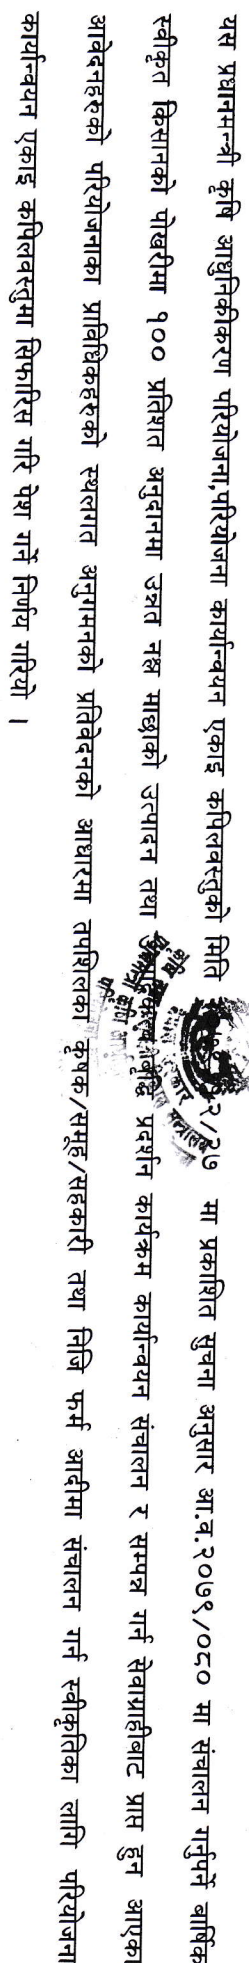 यस प्रधानमन्त्री कृषि आधुनिकीकरण परियोजना,परियोजना कार्यान्वयन एकाइ कपिलवस्तुको मिति २/२७ मा प्रकाशित सुचना अनुसार आ.व.२०७९/०८० मा संचालन गर्नुपर्ने बार्षिक
स्वीकृत किसानको पोखरीमा १०० प्रतिशत अनुदानमा उन्नत नश्ल माछाको उत्पादन तथा प्रदर्शन कार्यक्रम कार्यान्वयन संचालन र सम्पन्न गर्न सेवाग्राहीबाट प्राप्त हुन आएका
आवेदनहरुको परियोजनाका प्राविधिकहरुको स्थलगत अनुगमनको प्रतिवेदनको आधारमा तपशिलका कृषक/समूह/सहकारी तथा निजि फर्म आदीमा संचालन गर्न स्वीकृतिका लागि परियोजना
कार्यान्वयन एकाइ कपिलवस्तुमा सिफारिस गरि पेश गर्ने निर्णय गरियो ।